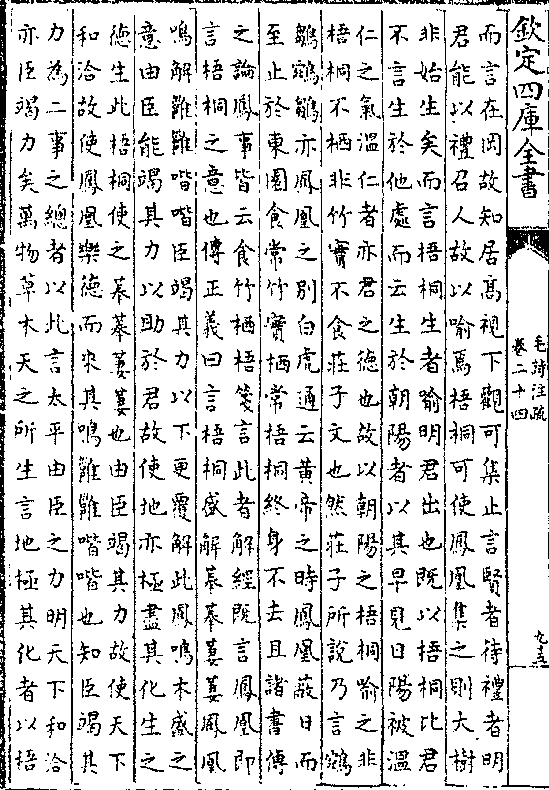 欽定四庫全書
毛詩注疏
卷二十四
而言在岡故知居高視下觀可集止言賢者待禮者明
君能以禮召人故以喻焉梧桐可使鳳凰集之則大樹
非始生矣而言梧桐生者喻明君出也既以梧桐比君
不言生於他處而云生於朝陽者以其早見日陽被溫
仁之氣溫仁者亦君之德也故以朝陽之梧桐喻之非
梧桐不栖非竹實不食莊子文也然莊子所說乃言鵷
鶵鵷鶵亦鳳凰之別白虎通云黃帝之時鳳凰蔽日而
至止於東園食常竹實栖常梧桐終身不去且諸書傳
之論鳳事皆云食竹栖梧箋言此者解經既言鳳凰即
言梧桐之意也傳正義曰言梧桐盛解菶菶萋萋鳳凰
鳴解雝雝喈喈臣竭其力以下更覆解此鳳鳴木盛之
意由臣能竭其力以助於君故使地亦極盡其化生之
德生此梧桐使之菶菶萋萋也由臣竭其力故使天下
和洽故使鳳凰樂德而來其鳴雝雝喈喈也知臣竭其
力為二事之總者以此言太平由臣之力明天下和洽
亦臣竭力矣萬物草木天之所生言地極其化者以梧